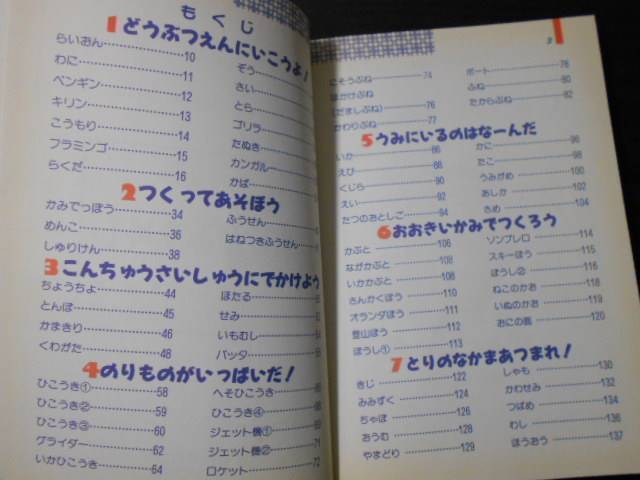 もくじ
1どうぶつえんにいこうよ!
らいおん 10
わに 11
ペンギン 12
キリン 13
こうもり 14
フラミンゴ 15
らくだ 16
ぞう
さい
とら
ゴリラ
たぬき
カンガルー
かば
2つくってあそぼう
かみでっぽう 34
めんこ 36
しゅりけん 38
ふうせん
はねつきふうせん
3こんちゅうさいしゅうにでかけよう
ちょうちょ 44
とんぼ 45
かまきり 46
くわがた 48
ほたる
せみ
いもむし
バッタ
4のりものがいっぱいだ!
ひこうき① 58
ひこうき② 59
ひこうき③ 60
グライダー 62
いかひこうき 64
へそひこうき
ひこうき④
ジェット機①
ジェット機② 71
ロケット 72
3
にそうぶね 74
ほかけぶね
(だましぶね) 76
かわりぶね 77
ボート 78
ふね 80
たからぶね 82
5うみにいるのはなーんだ
いか 86
えび 88
くじら 90
えい 92
たつのおとしご 94
かに 96
たこ 98
うみがめ 100
あしか 102
さめ 104
6おおきいかみでつくろう
かぶと 106
ながかぶと 108
いかかぶと 110
さんかくぼう 111
オランダぼう 111
登山ぼう 112
ぼうし① 113
ソンブレロ 114
スキーぼう 115
ぼうし② 116
ねこのかお 118
いぬのかお 119
おにの面 120
7とりのなかまあつまれ!
きじ 122
みみずく 124
ちゃぼ 126
おうむ 128
やまどり 129
しゃも 130
かわせみ 132
つばめ 134
わし 136
ほうおう 137